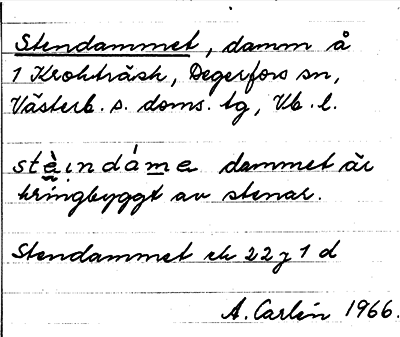 Stendammet, damm å
1 Krokträsk, Degerfors sn,
Västerb. s. doms. tg, Vb. l.
stèindámɐ dammet är
kringbyggt av stenar.
Stendammet ek 22 j 1 d
A. Carlin 1966.